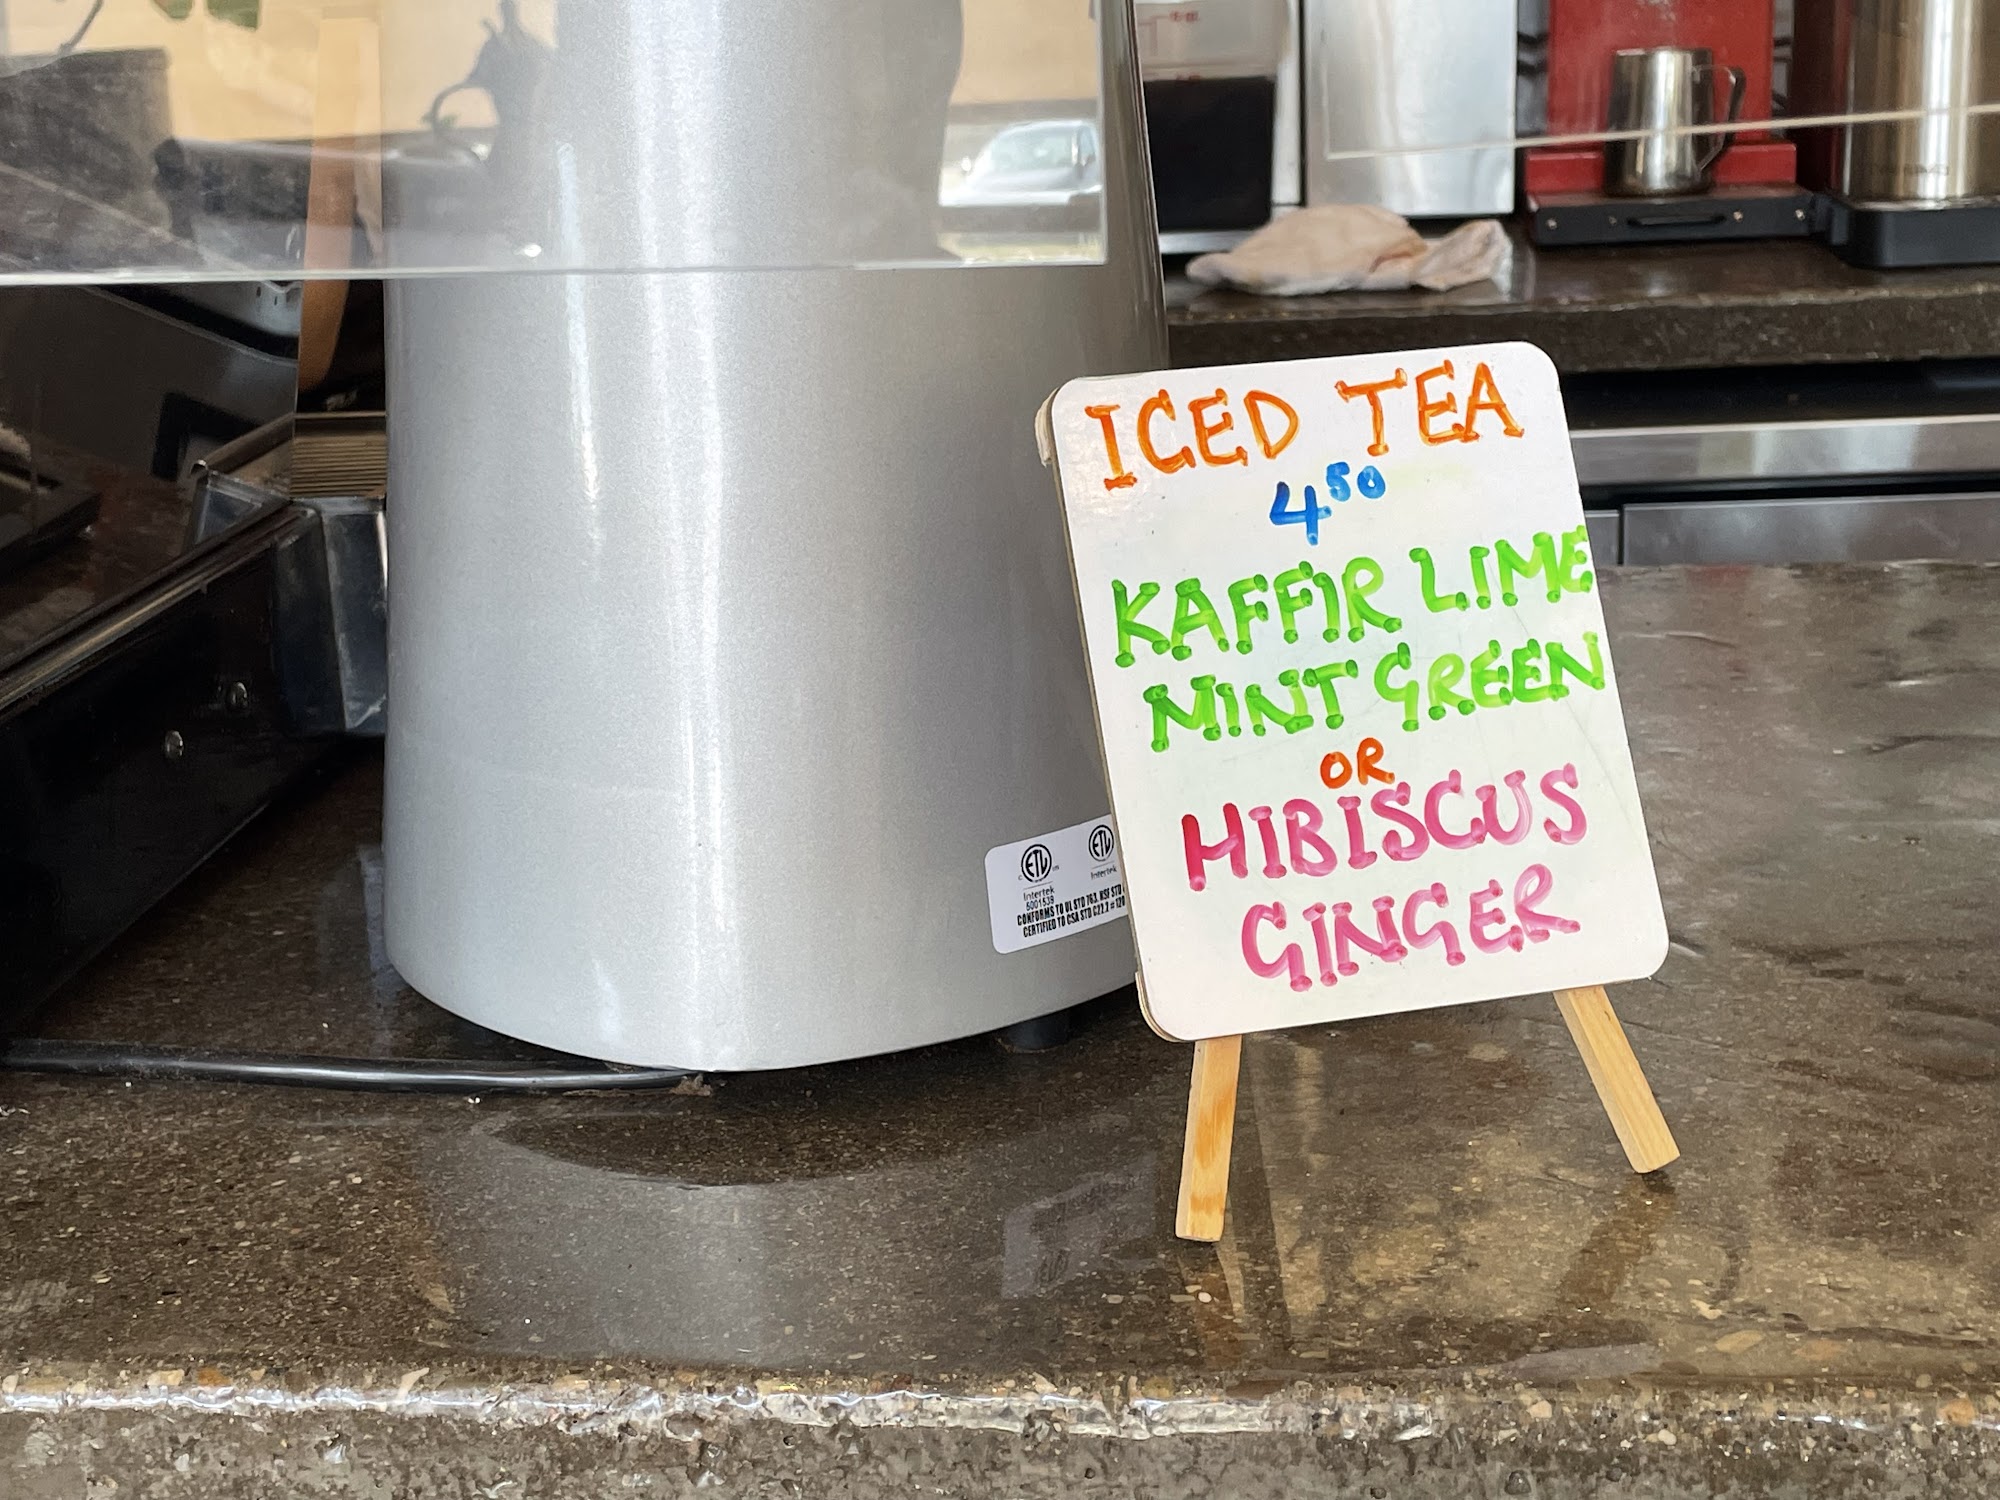 ICED TEA
4⁵⁰
KAFFIR LIME
MINT GREEN
OR
HIBISCUS
GINGER
ETL
Intertek
5001539
CONFORMS TO UL STD 763. NSF STD
CERTIFIED TO CSA STD C22.2 #
ETL
Intertek